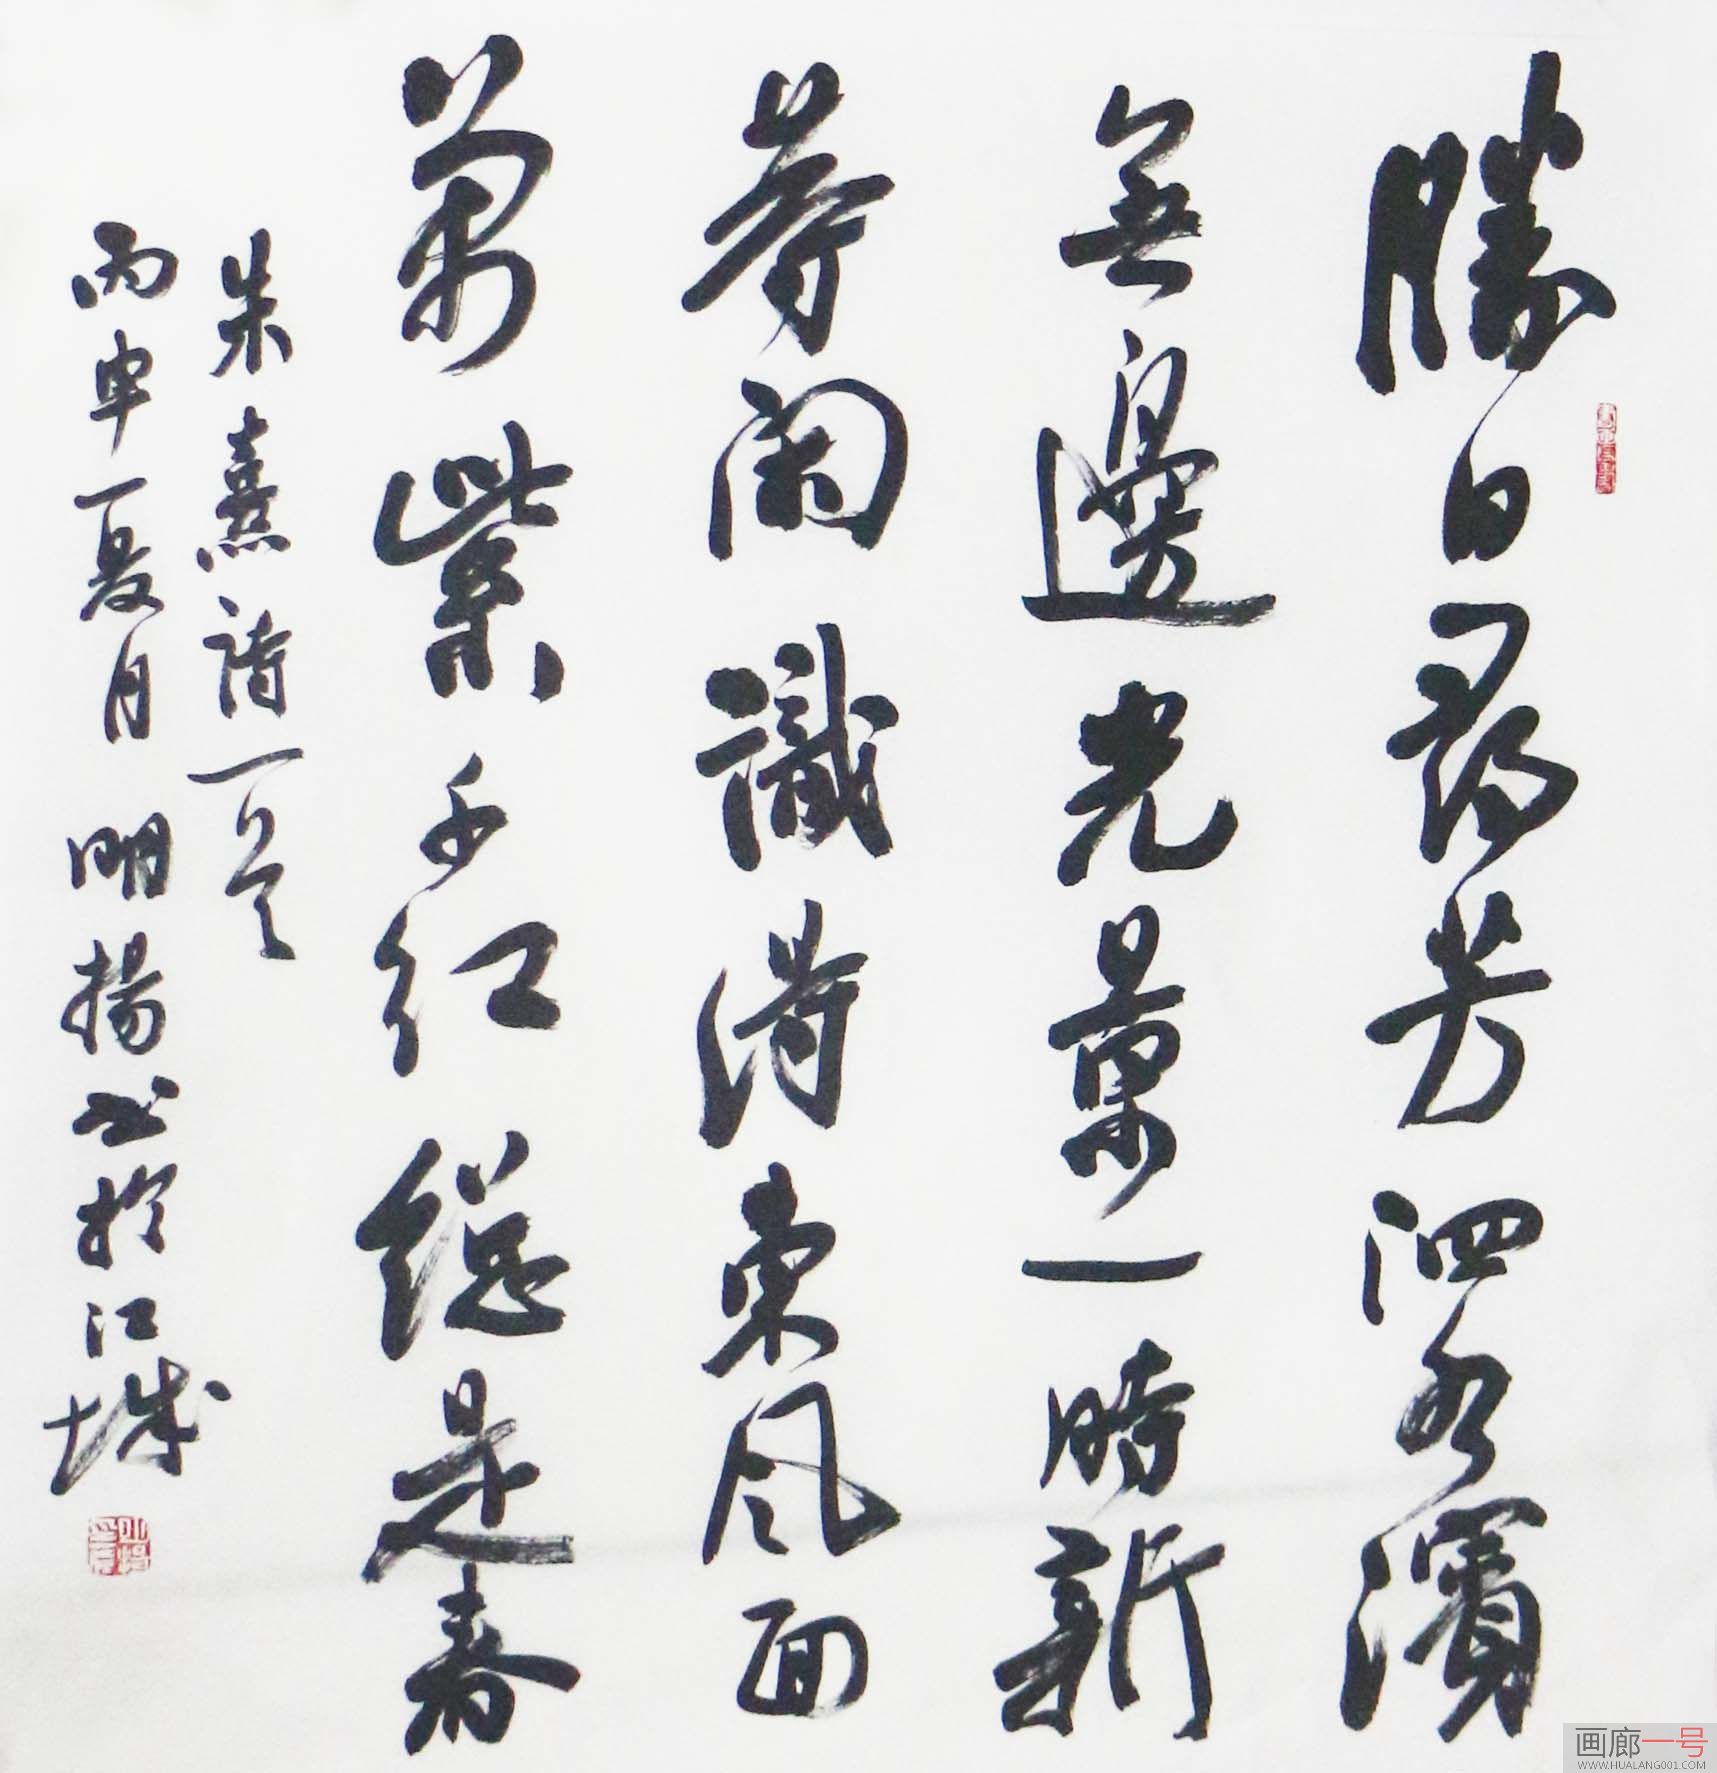 勝日尋芳泗水濱
無邊光景一時新
等閑識得東風面
萬紫千紅總是春
朱熹詩一首
丙申夏月明揚书於江城
画廊一号
WWW.HUALANG001.COM